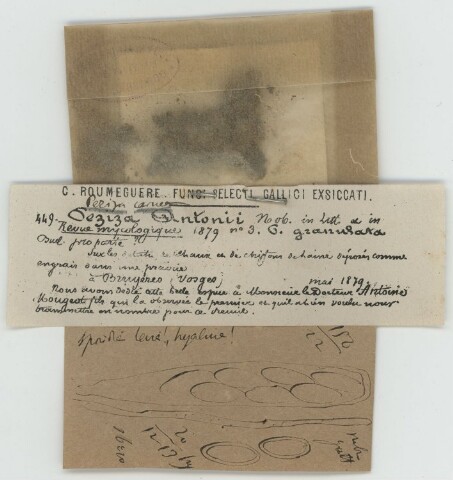 C. ROUMEGUERE. FUNGI SELECTI GALLICI EXSICCATI.
Peziza carnea
449. Peziza Antonii Nob. in Litt & in
Revue mycologique 1879 nº 3. C. granulata
Sur les détritus de chaux et de chiffons de laine déposés comme
engrais dans une prairie
à Bruyères (Vosges) mai 1879
Nous avons dédié cette belle espèce à Monsieur le Docteur Antoine
Mougeot fils qui l'a observée le premier et qui a bien voulu nous
transmettre en nombre pour ce recueil.
sporidie lévié, hyaline!
150
12
20
12-13